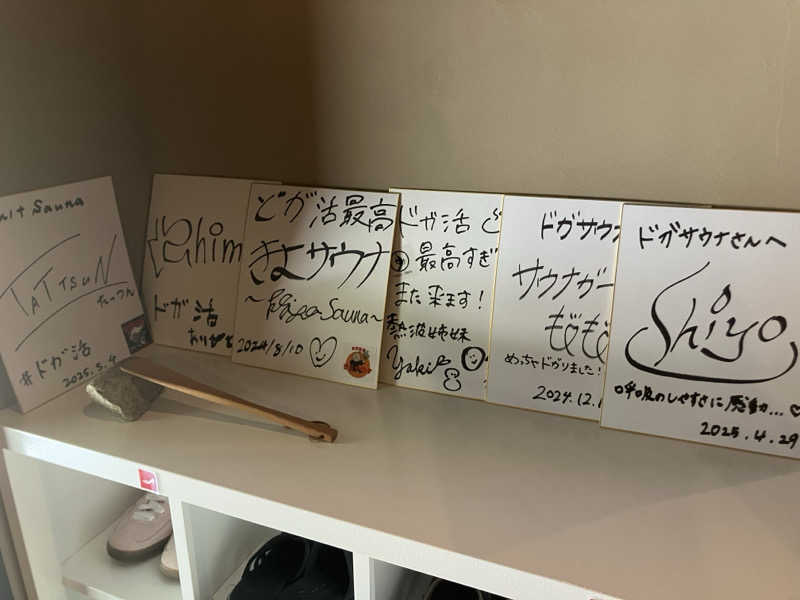 Sauna
TATTSUN
たーつん
#ドガ活
2025.5.4
ドガ活
どが活最高
きよサウナ
～Kiyo Sauna～
2024/8/10
ドガ活
最高すぎ
また来ます！
熱波姉妹
Yuki
ドガサウナ
サウナガー
もぢもぢ
めっちゃドガりました！
2024.12.1
ドガサウナさんへ
Shiyo
呼吸のしやすさに感動...♡
2025.4.29